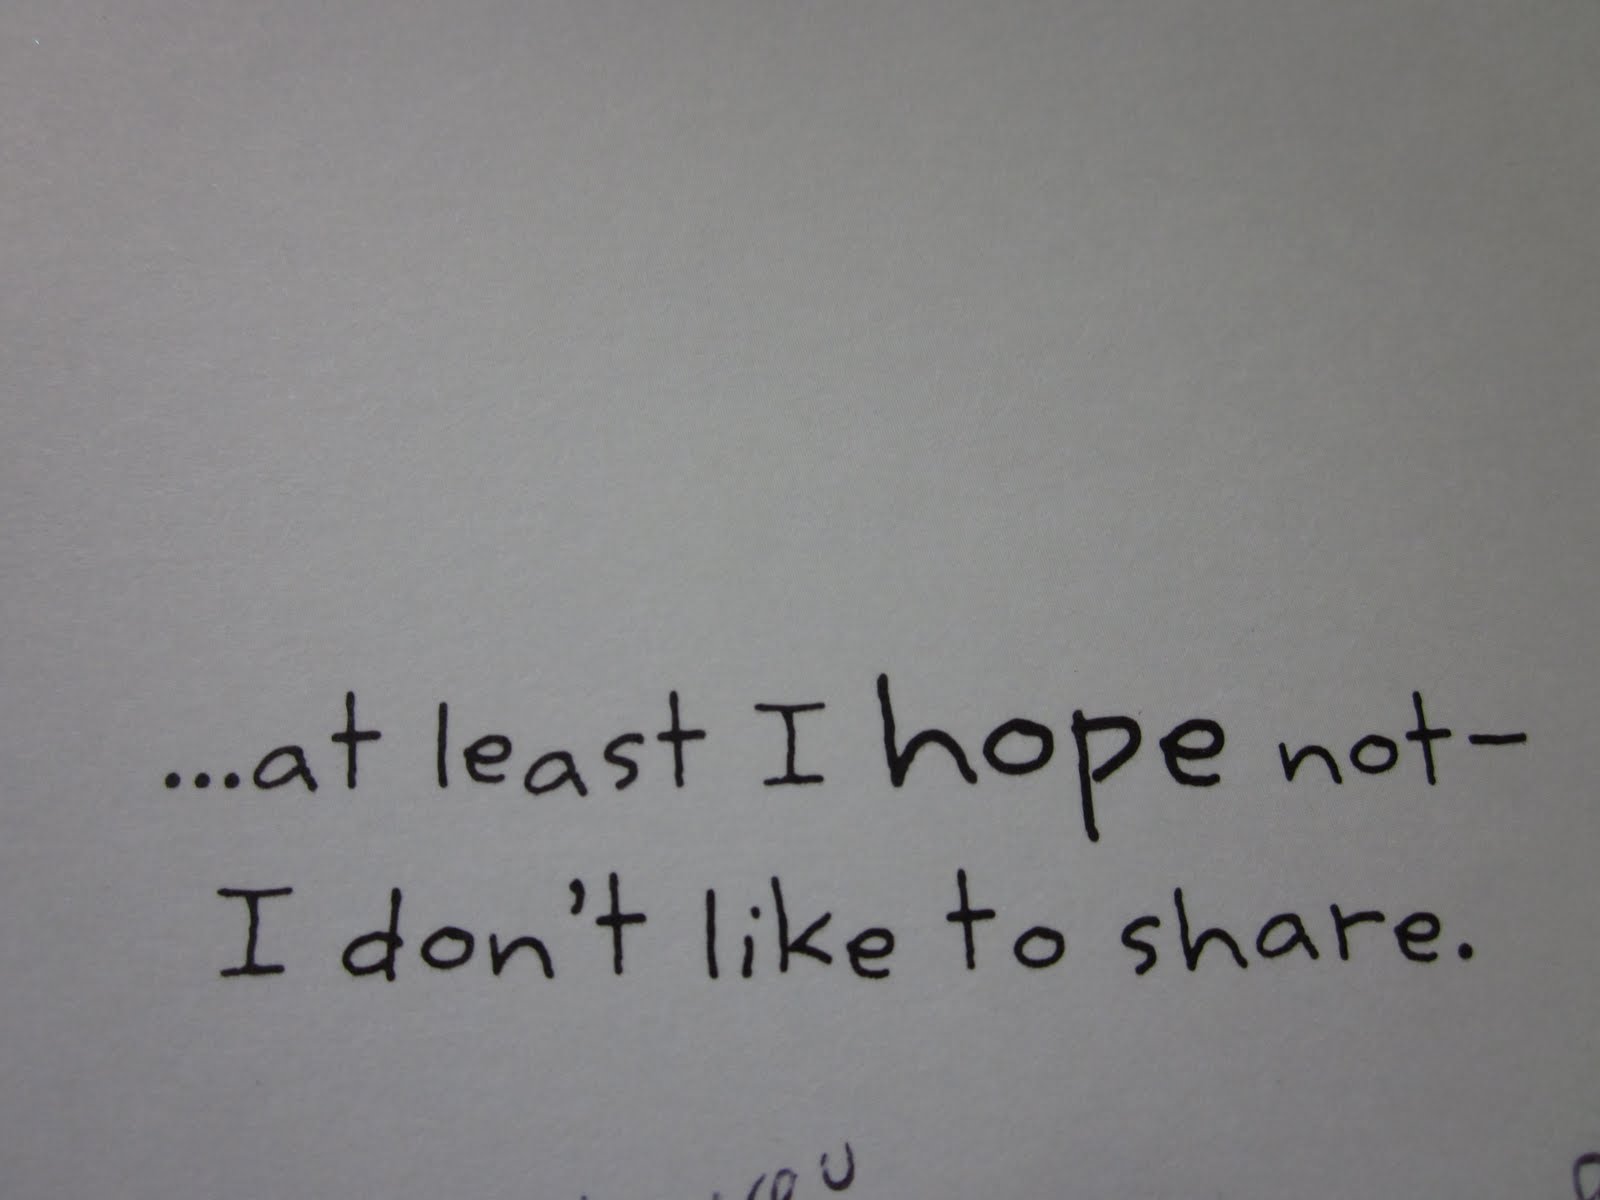 ...at least I hope not-
I don't like to share.